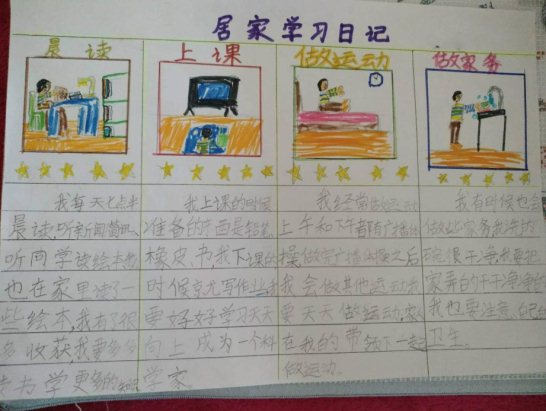 居家学习日记
晨读
上课
做运动
做家务
我每天七点半
晨读,听新闻
听同学读绘本
也在家里读了一
些绘本,我有了很
多收获,我要多
学更多的
我上课的时候
准备的东西是铅笔、
橡皮、书,我下课的
时候京尤写作业
要好好学习天天
向上成为一个科
学家。
我经常做运动
上午和下午都有广播体
操做完广播体操之后
我会做其他运动
要天天做运动,
在我的带领下一起
做运动。
我有时候也会
做家务我先把
碗
家弄的干干净净
我也要注意自己的
卫生。